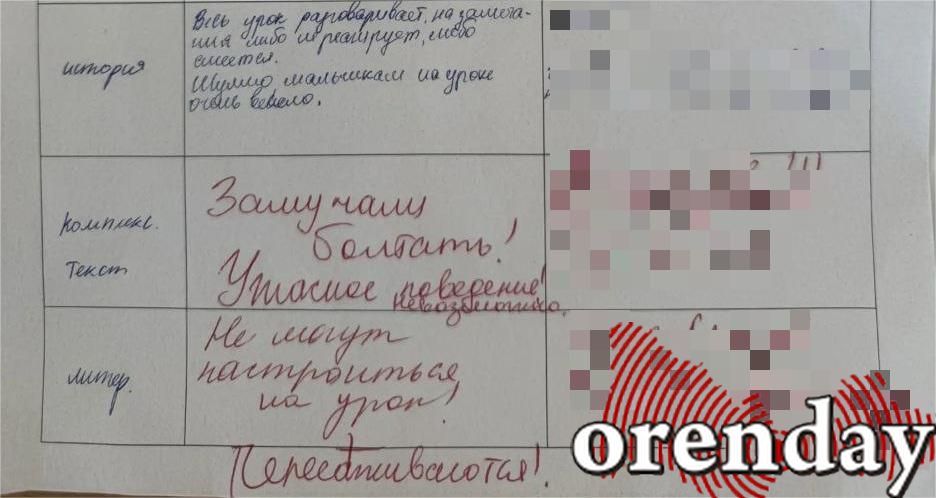 история
Весь урок разговаривает, на замеча-
ния либо не реагирует, либо
смеется.
Шумно мальчикам на уроке
очень весело.
Комплекс.
Текст
Замучали
болтать!
Ужасное поведение!
невозможно.
литер.
Не могут
настроиться
на урок!
Пересаживаются!
orenday